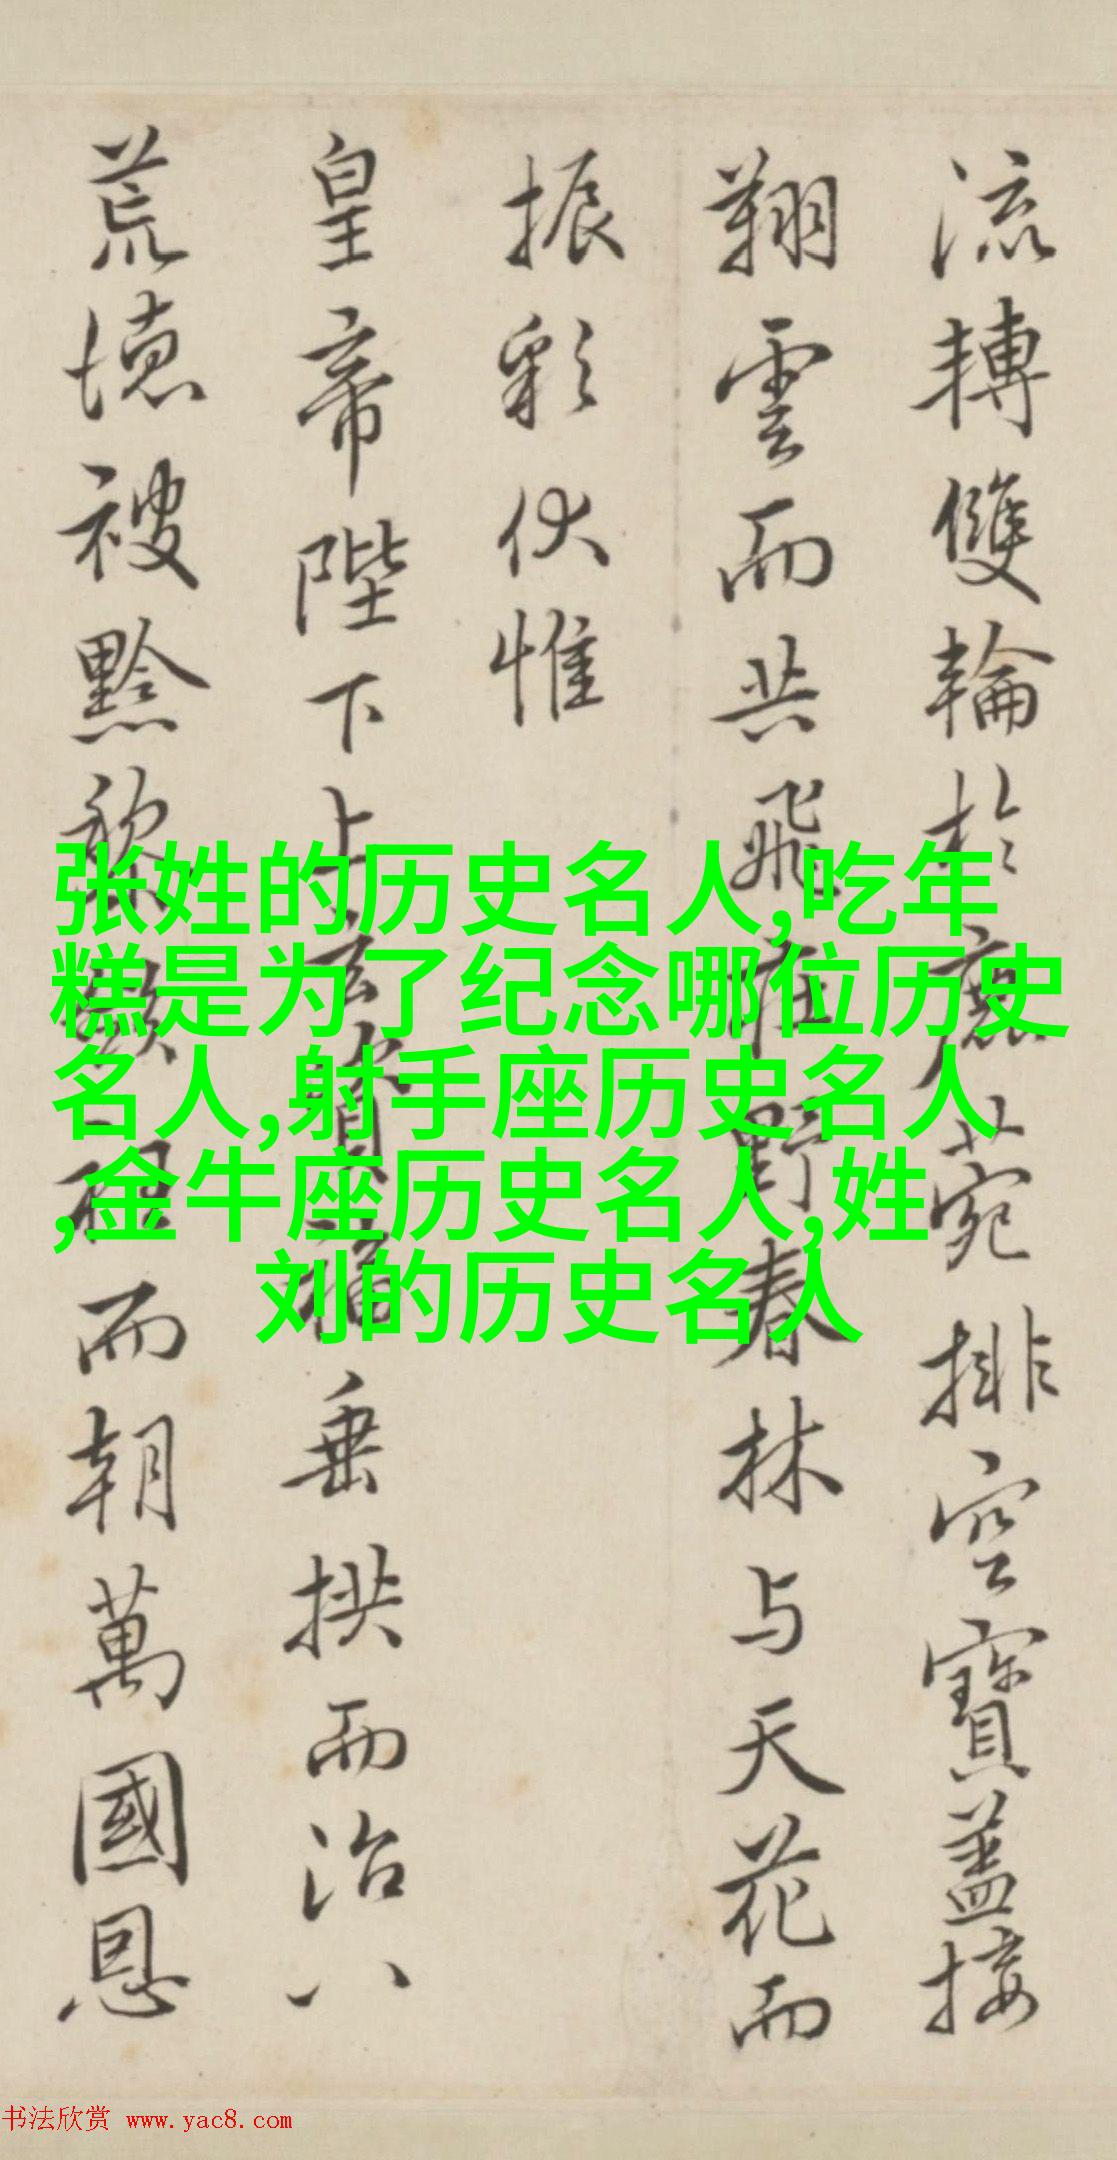 流轉雙輪於鹿苑排空寶蓋接
翔雲而共飛莊野春林与天花而
振彩伏惟
皇帝陛下上玄資福垂拱而治八
荒德被黔黎斂衽而朝萬國恩
张姓的历史名人,吃年
糕是为了纪念哪位历史
名人,射手座历史名人
,金牛座历史名人,姓
刘的历史名人
书法欣赏 www.yac8.com